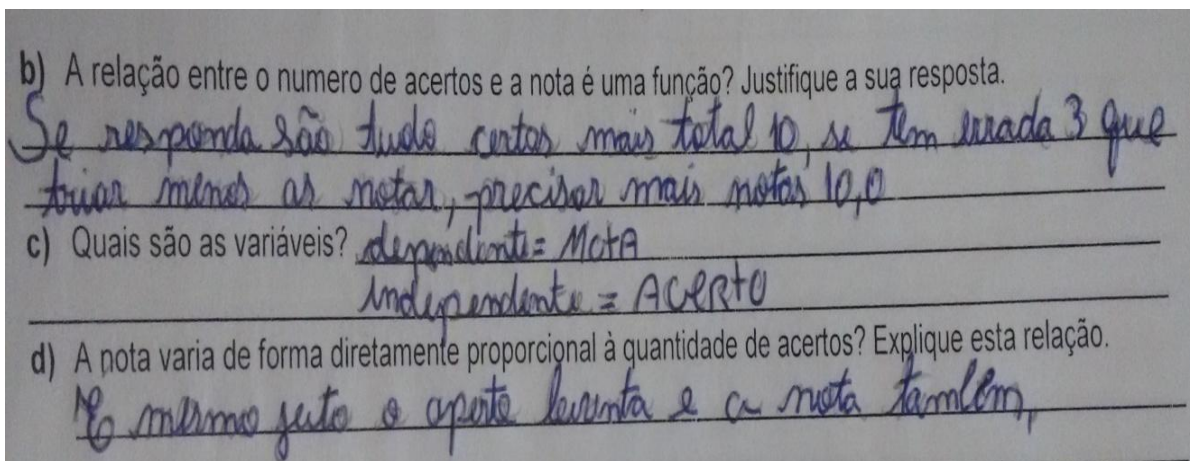 b) A relação entre o numero de acertos e a nota é uma função? Justifique a sua resposta.
Se responda são tudo certos mais total 10, se tem errada 3 que
triar menos as notas, precisar mais notas 10,0
c) Quais são as variáveis? dependente = NotA
independente = ACeRtO
d) A nota varia de forma diretamente proporcional à quantidade de acertos? Explique esta relação.
mesmo jeito o a nota também,